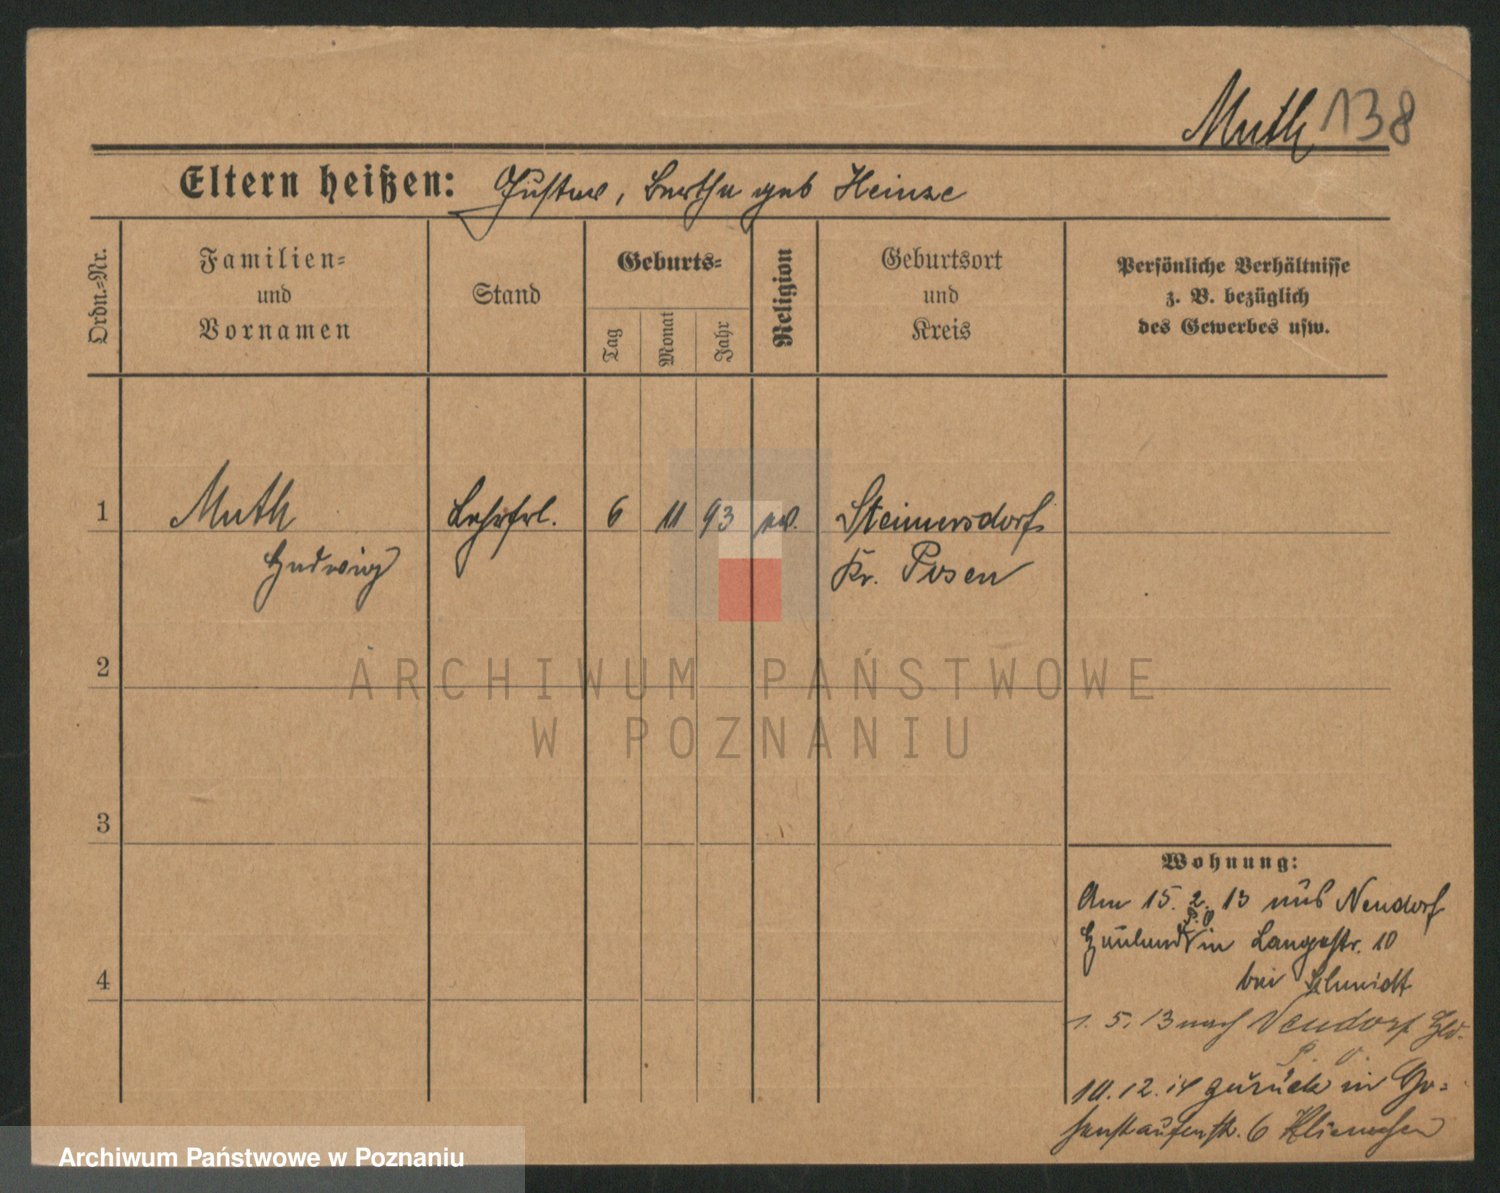 Muth 138
Eltern heißen: Gustav, Bertha geb Heinze
Ordn.-Nr.
Familien-
und
Vornamen
Stand
Geburts-
Tag
Monat
Jahr
Religion
Geburtsort
und
Kreis
Persönliche Verhältnisse
z. B. bezüglich
des Gewerbes usw.
1
Muth
Hedwig
6
11
93
ev.
Steinersdorf
Kr. Posen
2
3
4
Wohnung:
Am 15. 2. 13 aus Neudorf
P. O.
Hauland in Langestr. 10
bei Schmidt
1. 5. 13 nach Neudorf Hld.
P. O.
10. 12. 14 zurück in Ho-
henstaufenstr. 6
ARCHIWUM PAŃSTWOWE
W POZNANIU
Archiwum Państwowe w Poznaniu